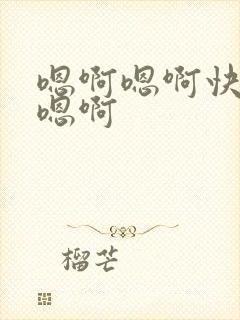 嗯啊嗯啊快
嗯啊
榴芒